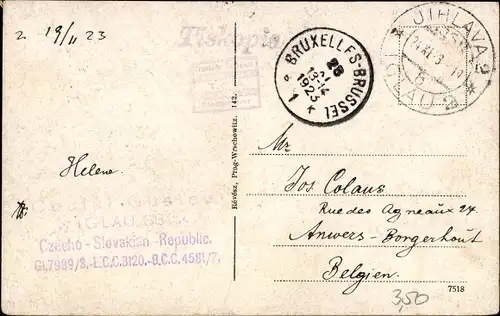 2 19/11 23
Tiskopis
BRUXELLES-BRUSSEL
1923
1
JIHLAVA 2
IGLAU 2
Helene.
Czecho-Slovakian Republic.
Gl.7989/8.-L.C.C.3120.-B.C.C.4581/7.
Révész, Prag-Wrschowitz. 142.
Mr
Jos Colaus
Rue des Agneaux 24
Anwers-Borgerhout
Belgien.
7518
3,50